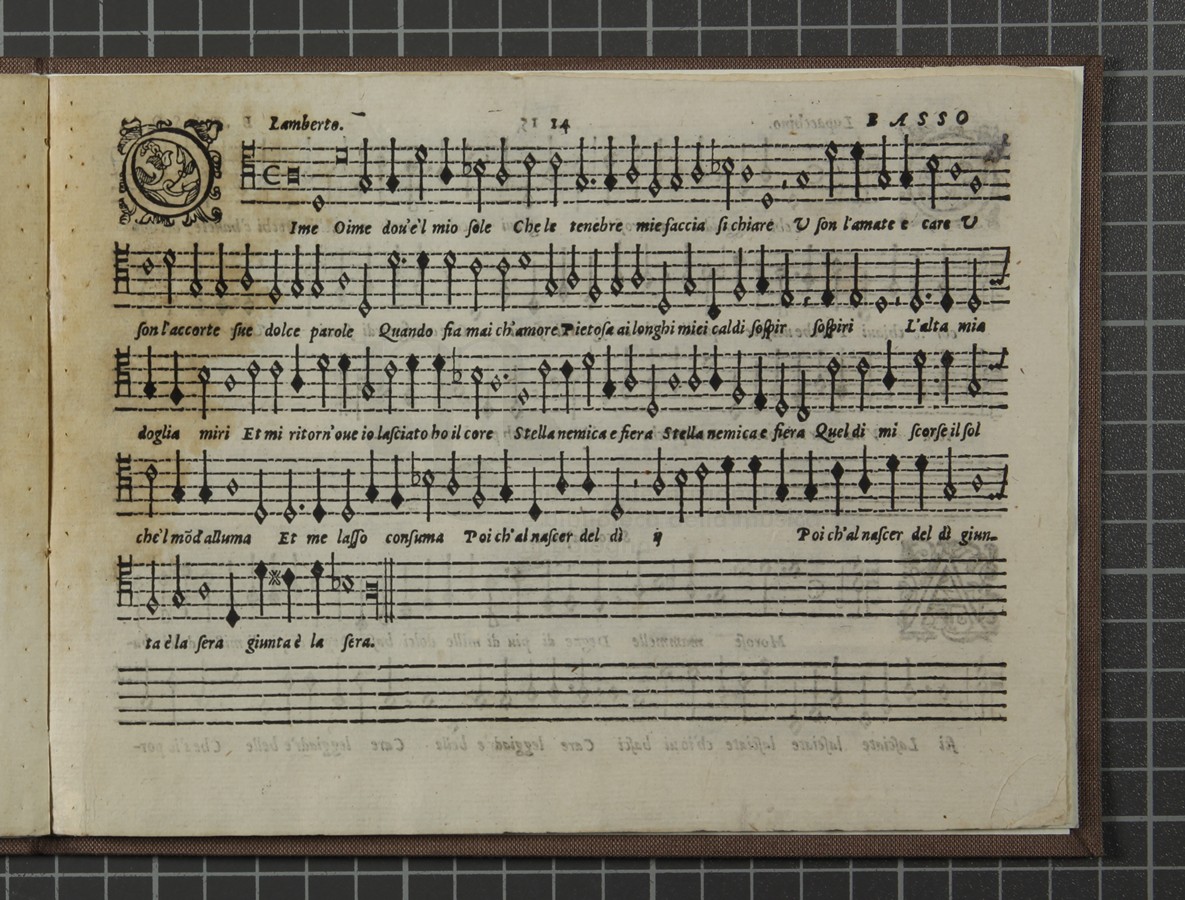 Lamberto. 14 BASSO
O Ime Oime dou'e'l mio ſole Che le tenebre mie faccia ſi chiare V ſon l'amate e care V
ſon l'accorte ſue dolce parole Quando fia mai ch'amore Pietoſa ai longhi miei caldi ſoſpir ſoſpiri L'alta mia
doglia miri Et mi ritorn'oue io laſciato ho il core Stella nemica e fiera Stella nemica e fiera Quel di mi ſcorſe il ſol
che'l mōd'alluma Et me laſſo conſuma Poi ch'al naſcer del dì ij Poi ch'al naſcer del dì giun-
ta è la ſera giunta è la ſera.